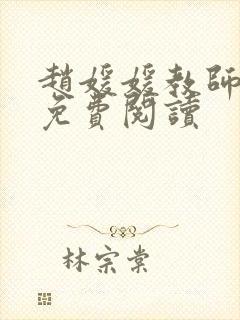 趙媛媛教師
免費閱讀
林宗棠